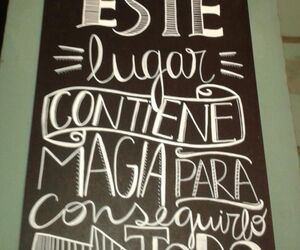 ESTE
lugar
CONTIENE
MAGIA PARA
conseguirlo